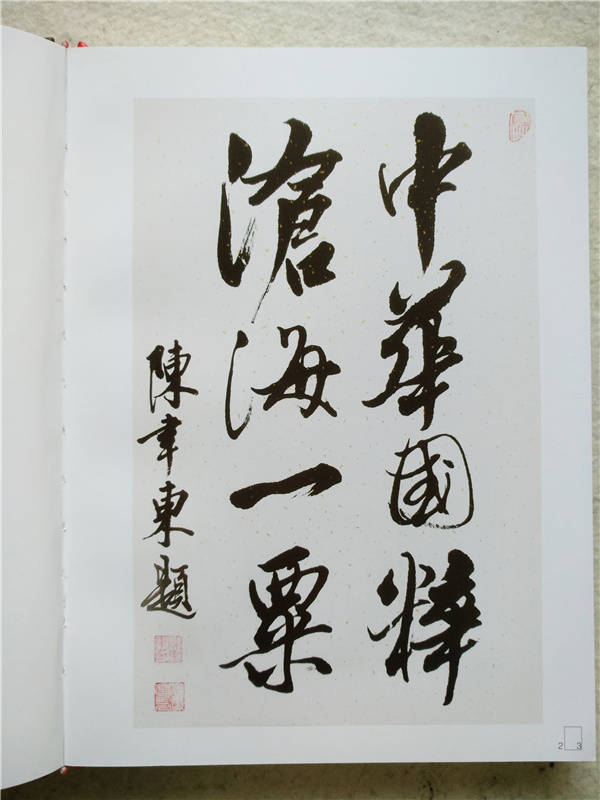 中華國粹
滄海一粟
陳韋東題
2 3